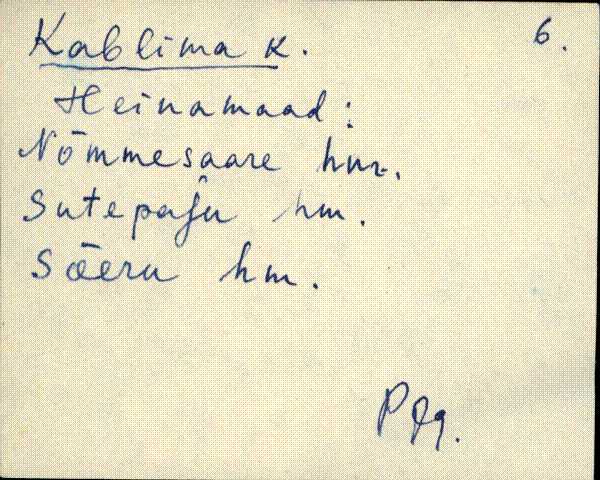 Kablima k. 6.
Heinamaad:
Nõmmesaare hm.
Sutepaju hm.
Sõeru hm.